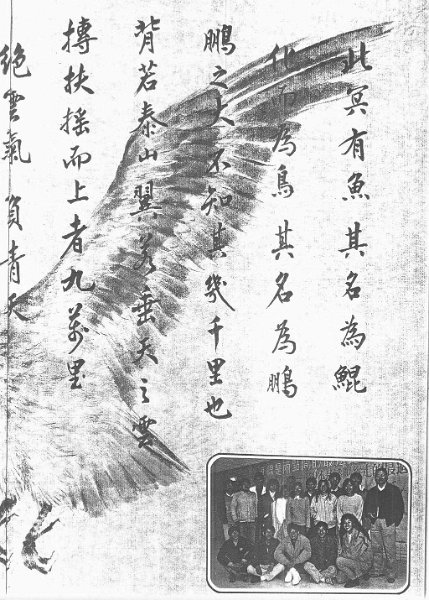 北冥有魚其名為鯤
化而為鳥其名為鵬
鵬之大不知其幾千里也
背若泰山翼若垂天之雲
摶扶搖而上者九萬里
絕雲氣負青天